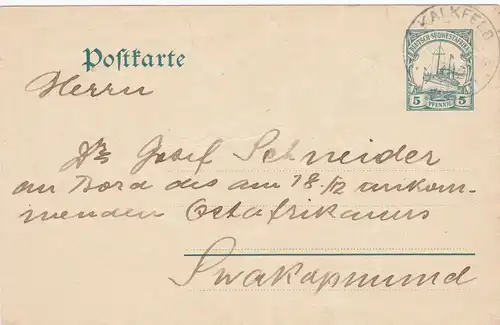 KALKFELD
DEUTSCH-SÜDWESTAFRIKA
Postkarte
5 PFENNIG 5
Herrn
Dr Josef Schneider
an Bord des am 18/12 ankom-
menden Ostafrikaners
Swakopmund